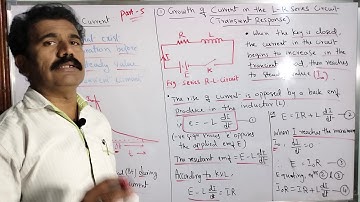 Current
Part-5
exist
before
steady value
current
① Growth of Current in the L-R Series Circuit-
(Transient Response)
R
L
E
Fig. Series R-L Circuit
• When the key is closed,
the current in the circuit
begins to increase in the
transient and then reaches
to steady value (I₀).
• The rise of current is opposed by a back emf
produce in the inductor (L)
e = - L di/dt —①
(-ve sign means e opposes
the applied emf E)
The resultant emf = E - L di/dt
According to KVL -
E - L di/dt = IR
② E = IR + L di/dt
when I reaches the maximum
I = I₀
di/dt = 0
∴ E = I₀R —③
Equating eqⁿ ② & ③
I₀R = IR + L di/dt —④
during
current.